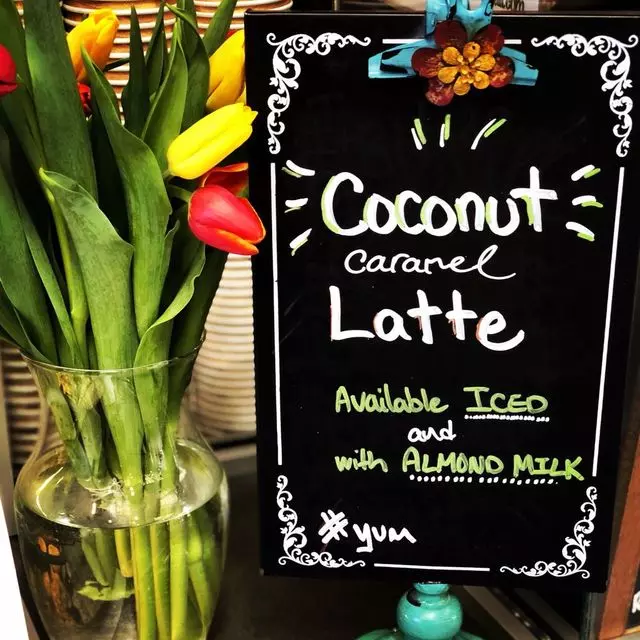 Coconut
caramel
Latte
Available ICED
and
with ALMOND MILK
#yum